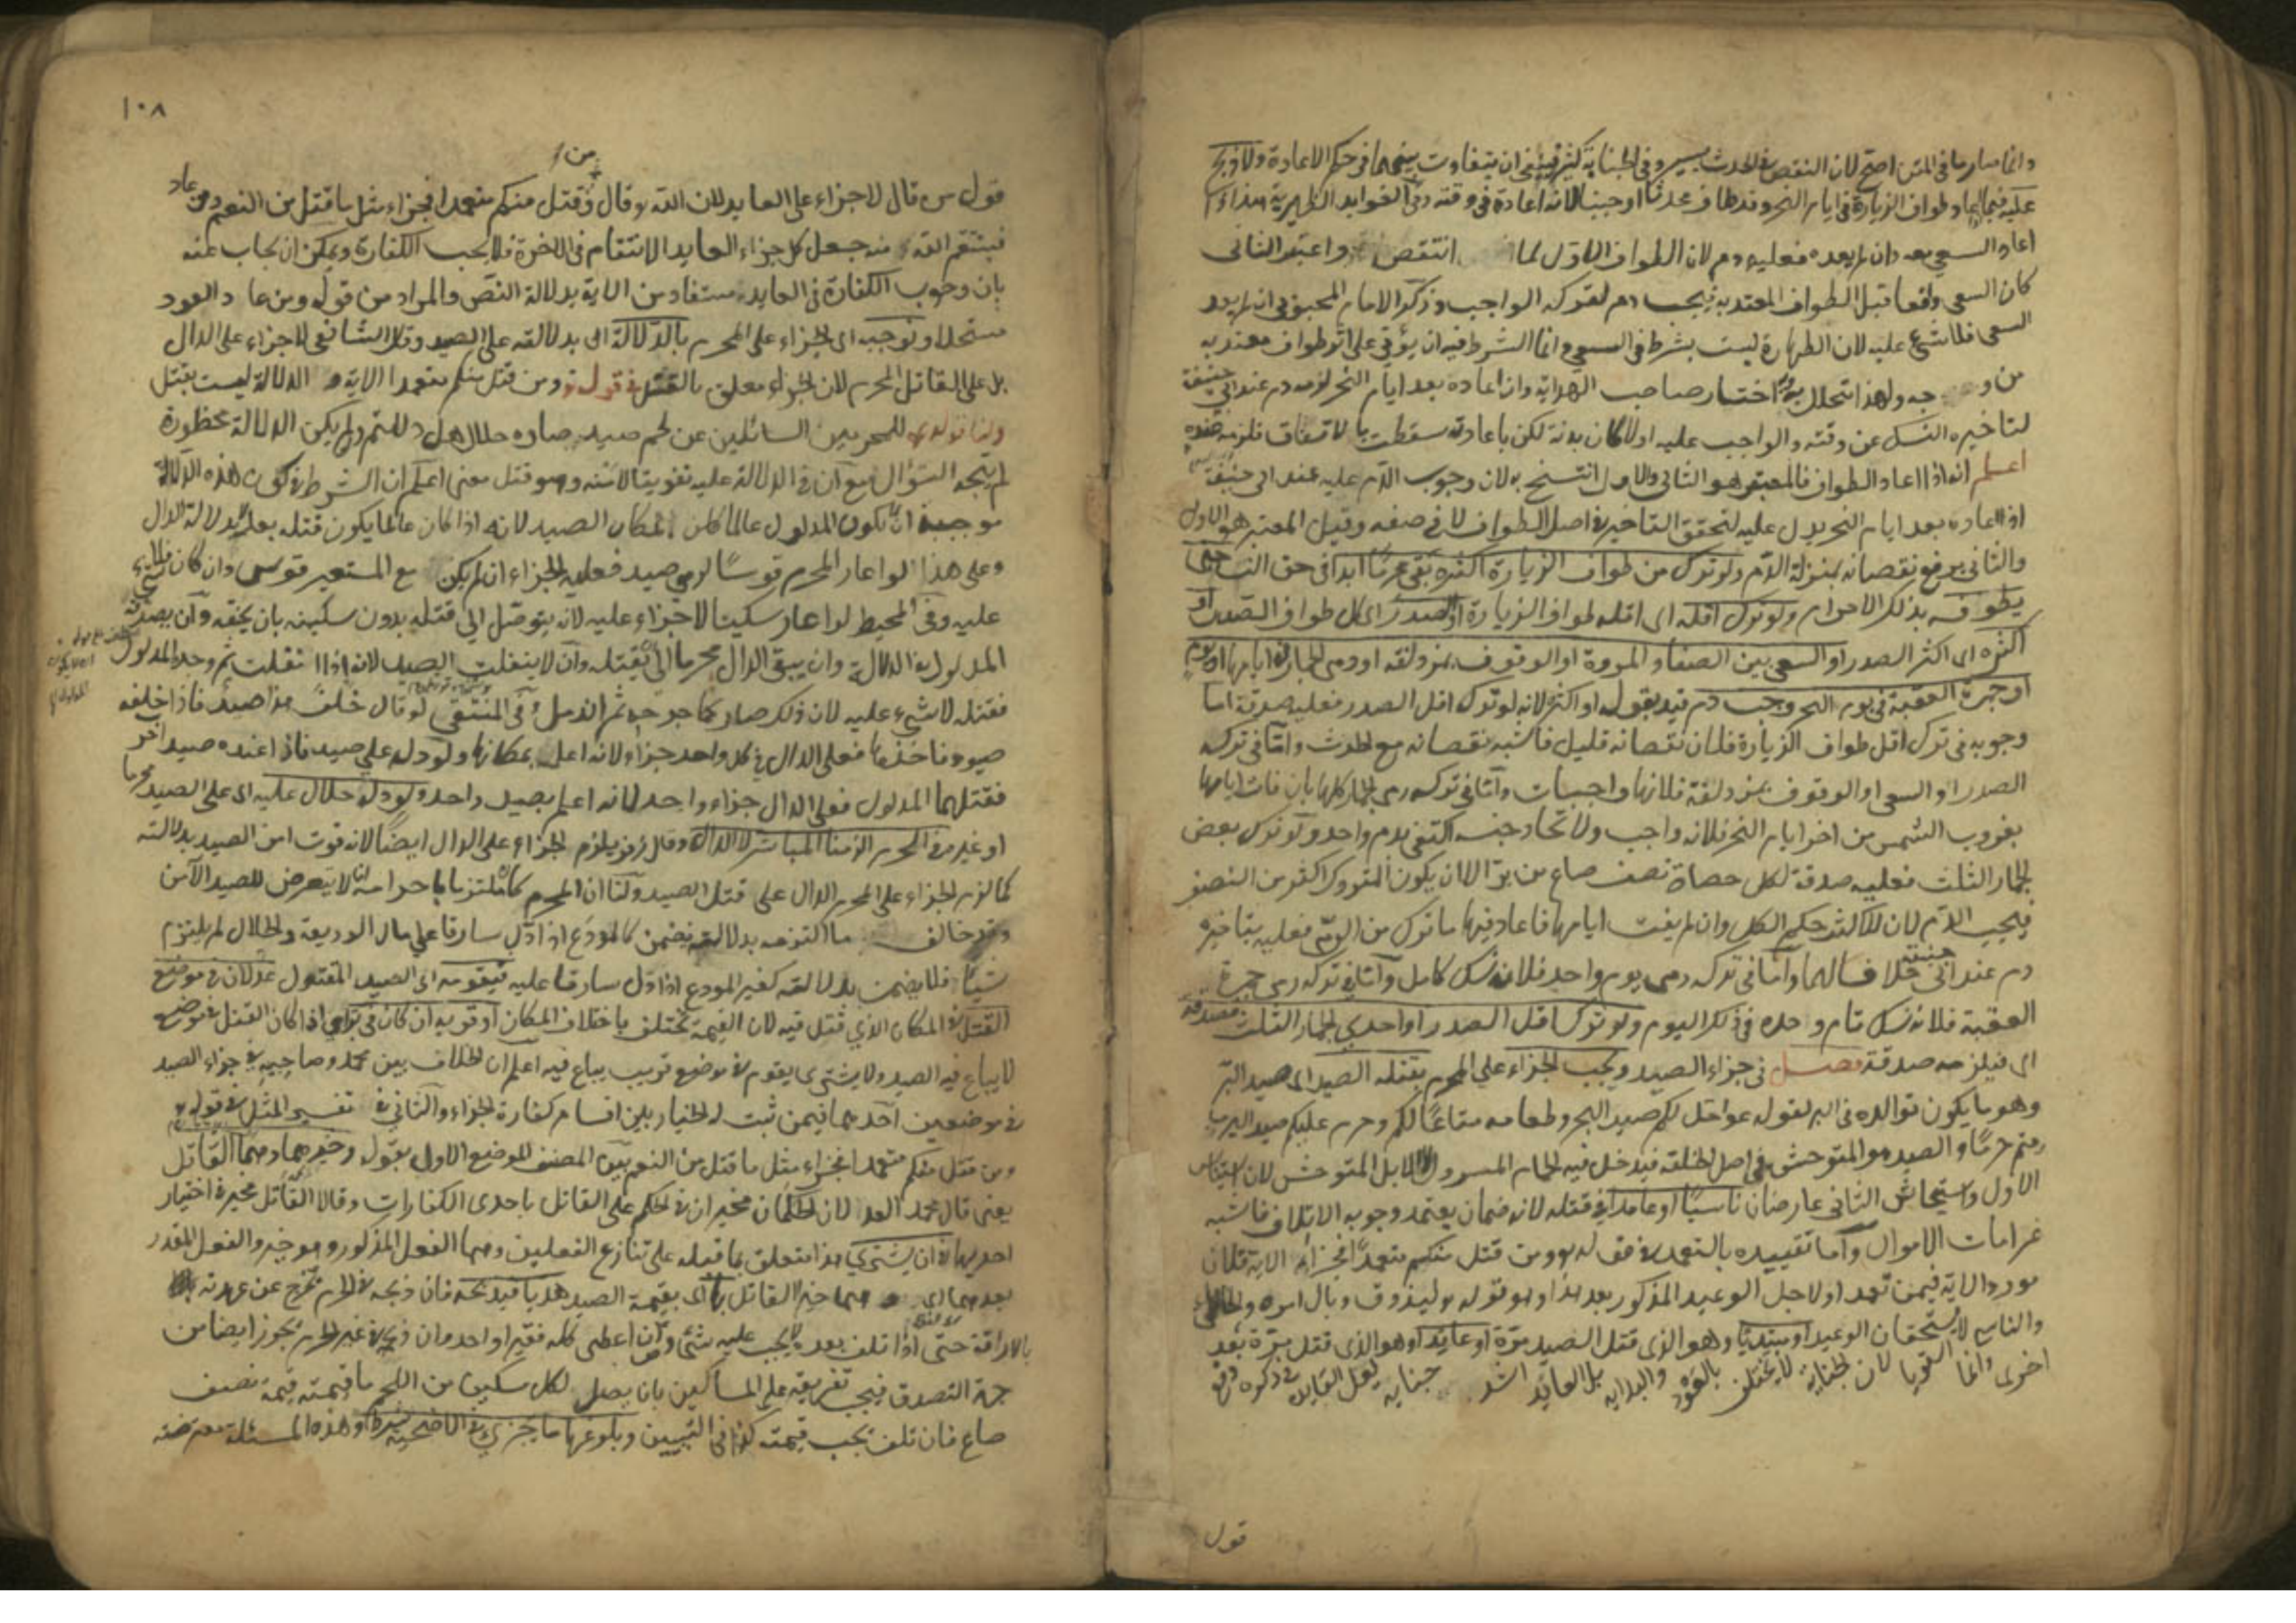 وانما صار ما في المتن اصح لان النقص في الحدث يسير وفي الجنابة كثير فينبغي ان يتفاوت بينهما في حكم الاعادة ولا ذبح
عليه فيما اعاد طواف الزيارة في ايام النحر وقد طاف محدثا او جنبا لانه اعادة في وقته وفي الفوايد الظهيرية هذا اذا
اعاد السعي معه وان لم يعده فعليه دم لان الطواف الاول لما انتقض واعتبر الثاني
كان السعي واقعا قبل الطواف المعتد به فيجب دم لتركه الواجب وذكر الامام المحبوبي ان لم يعد
السعي فلا شيء عليه لان الطهارة ليست بشرط في السعي وانما الشرط فيه ان يؤتى على اثر طواف معتد به
من وجه ولهذا تحلل به اختار صاحب الهداية وان اعاده بعد ايام النحر لزمه دم عند ابي حنيفة
لتاخيره النسك عن وقته والواجب عليه اولا كان بدنة لكن باعادته سقطت بالاتفاق
اعلم انه اذا اعاد الطواف فالمعتبر هو الثاني والاول انتسخ به لان وجوب الدم عليه عند ابي حنيفة
اذا اعاده بعد ايام النحر يدل عليه لتحقق التاخير في اصل الطواف لا في صفه وقيل المعتبر هو الاول
والثاني يرفع نقصانه بمنزلة الدم ولو ترك من طواف الزيارة اكثره بقي محرما ابدا في حق النساء حتى
يطوفه بذلك الاحرام ولو ترك اقله اي اقله طواف الزيارة او الصدر اي كل طواف الصدر او
اكثره اي اكثر الصدر او السعي بين الصفا والمروة او الوقوف بمزدلفة او رمي الجمار في ايامها او يوم
او جمرة العقبة في يوم النحر وجب دم قيد بقوله او اكثره لانه لو ترك اقل الصدر فعليه صدقة اما
وجوبه في ترك اقل طواف الزيارة فلان نقصانه قليل فاشبه نقصانه مع الحدث واما في تركه
الصدر او السعي او الوقوف بمزدلفة فلانها واجبات واما في تركه رمي الجمار كلها بان فات ايامها
بغروب الشمس من اخر ايام النحر فلانه واجب ولاتحاد جنسه اكتفى بدم واحد ولو ترك بعض
الجمار الثلث فعليه صدقة لكل حصاة نصف صاع من بر الا ان يكون المتروك اكثر من النصف
فيجب الدم لان للاكثر حكم الكل وان لم يفت ايامها فاعاد فيها ما ترك من الرمي فعليه بتاخيره
دم عند ابي حنيفة خلافا لهما واما في تركه رمي يوم واحد فلانه نسك كامل واما في تركه رمي جمرة
العقبة فلانه نسك تام وحده في ذلك اليوم ولو ترك اقل الصدر او احدي الجمار الثلث فصدقة
اي فيلزمه صدقة فصل في جزاء الصيد ويجب الجزاء علي المحرم بقتله الصيد اي صيد البر
وهو ما يكون توالده في البر لقوله عز احل لكم صيد البحر وطعامه متاعا لكم وحرم عليكم صيد البر ما
دمتم حرما والصيد هو المتوحش في اصل الخلقة فيدخل فيه الحمام المسرول لا الابل المتوحش لان استيناس
الاول واستيحاش الثاني عارضان ناسيا او عامدا في قتله لانه ضمان يعتمد وجوبه الاتلاف فاشبه
غرامات الاموال واما تقييده بالتعمد في قوله ومن قتل منكم متعمدا فجزاء الاية فلان
مورد الاية فيمن تعمد او لاجل الوعيد المذكور بعد هذا وهو قوله ليذوق وبال امره والخاطئ
والناسي لا يستحقان الوعيد او مبتديا وهو الذي قتل الصيد مرة او عايدا وهو الذي قتل مرة بعد
اخرى وانما لان الجناية لا يختلف بالعود والبداية بل العايد اشد جناية لعل الفايدة في ذكره دفع
قول
١٠٨
قول من قال لا جزاء على العايد لان الله قال ومن قتل منكم متعمدا فجزاء مثل ما قتل من النعم ومن عاد
فينتقم الله منه جعل كل جزاء العايد الانتقام في الاخرة فلا يجب الكفارة ويمكن ان يجاب عنه
بان وجوب الكفارة في العايد مستفاد من الاية بدلالة النص والمراد من قوله ومن عاد العود
مستحلا وتوجبه اي الجزاء على المحرم بالدلالة اي بدلالته على الصيد وقال الشافعي لا جزاء على الدال
بل على القاتل المحرم لان الجزاء معلق بالقتل في قوله ومن قتل منكم متعمدا الاية والدلالة ليست بقتل
ولنا قوله للمحرمين السائلين عن لحم صيد صاده حلال هل دللتم ولو لم يكن الدلالة محظورة
لم يتجه السؤال مع ان في الدلالة عليه تفويتا لامنه وهو قتل معنى اعلم ان الشرط في كون هذه الدلالة
موجبة ان لا يكون المدلول عالما بمكان الصيد لانه اذا كان عالما يكون قتله بعلمه لا بدلالة الدال
وعلى هذا لو اعار المحرم قوسا لرمي صيد فعليه الجزاء ان لم يكن مع المستعير قوس وان كان فلا شيء
عليه وفي المحيط لو اعار سكينا لا جزاء عليه لانه يتوصل الى قتله بدون سكينه بان يخنقه وان يصدقه
المدلول في الدلالة وان يبقى الدال محرما الى ان يقتله وان لا ينفلت الصيد لانه اذا انفلت ثم وجده المدلول
فقتله لا شيء عليه لان ذلك صار كما جرحه ثم اندمل وفي المنتقى لو قال خلف هذا صيد فاذا خلفه
صيود فاخذها فعلى الدال في كل واحد جزاء لانه اعلم بمكانها ولو دله علي صيد فاذا عنده صيد اخر
فقتلهما المدلول فعلى الدال جزاء واحد لانه اعلم بصيد واحد ولو دله حلال عليه اي على الصيد محرما
او غيره في الحرم الزمنا المباشر لا الدال وقال زفر يلزم الجزاء على الدال ايضا لانه فوت امن الصيد بدلالته
كما لزم الجزاء على المحرم الدال على قتل الصيد ولنا ان المحرم كان ملتزما باحرامه ان لا يتعرض للصيد الآمن
وقد خالف ما التزمه بدلالته فيضمن كالمودع اذا دل سارقا علي مال الوديعة والحلال لم يلتزم
شيئا فلا يضمن بدلالته كغير المودع اذا دل سارقا عليه فيقومه اي الصيد المقتول عدلان في موضع
القتل في المكان الذي قتل فيه لان القيمة تختلف باختلاف المكان او قربه ان كان في براي اذا كان القتل في موضع
لا يباع فيه الصيد ولا يشترى يقوم في موضع قريب يباع فيه اعلم ان الخلاف بين محمد وصاحبيه في جزاء الصيد
في موضعين احدهما فيمن ثبت له الخيار بين اقسام كفارة الجزاء والثاني في تفسير المثل في قوله
ومن قتل منكم متعمدا فجزاء مثل ما قتل من النعم بين المصنف الموضع الاول بقوله وخيرهما وهما القاتل
يعني قال محمد العدلان الحكمان مخيران في الحكم على القاتل باحدى الكفارات وقالا القاتل مخير في اختيار
احديها في ان يشتري هذا متعلق بما قبله على تنازع الفعلين وهما الفعل المذكور وهو خير والفعل المقدر
بعد هما اي وهما خير القاتل بها اي بقيمة الصيد هديا فيذبحه فان ذبحه في الحرم يخرج عن عهدته
بالاراقة حتى اذا تلف بعده لا يجب عليه شيء وان اعطى كله فقيرا واحدا وان ذبحه في غير الحرم يجوز ايضا من
جهة التصدق فيجب تفريقه على المساكين بان يصل لكل مسكين من اللحم ما قيمته قيمة نصف
صاع فان تلف يجب قيمته كذا في التبيين وبلوغها ما يجزي في الاضحية شرط وهذه المسئلة معترضة